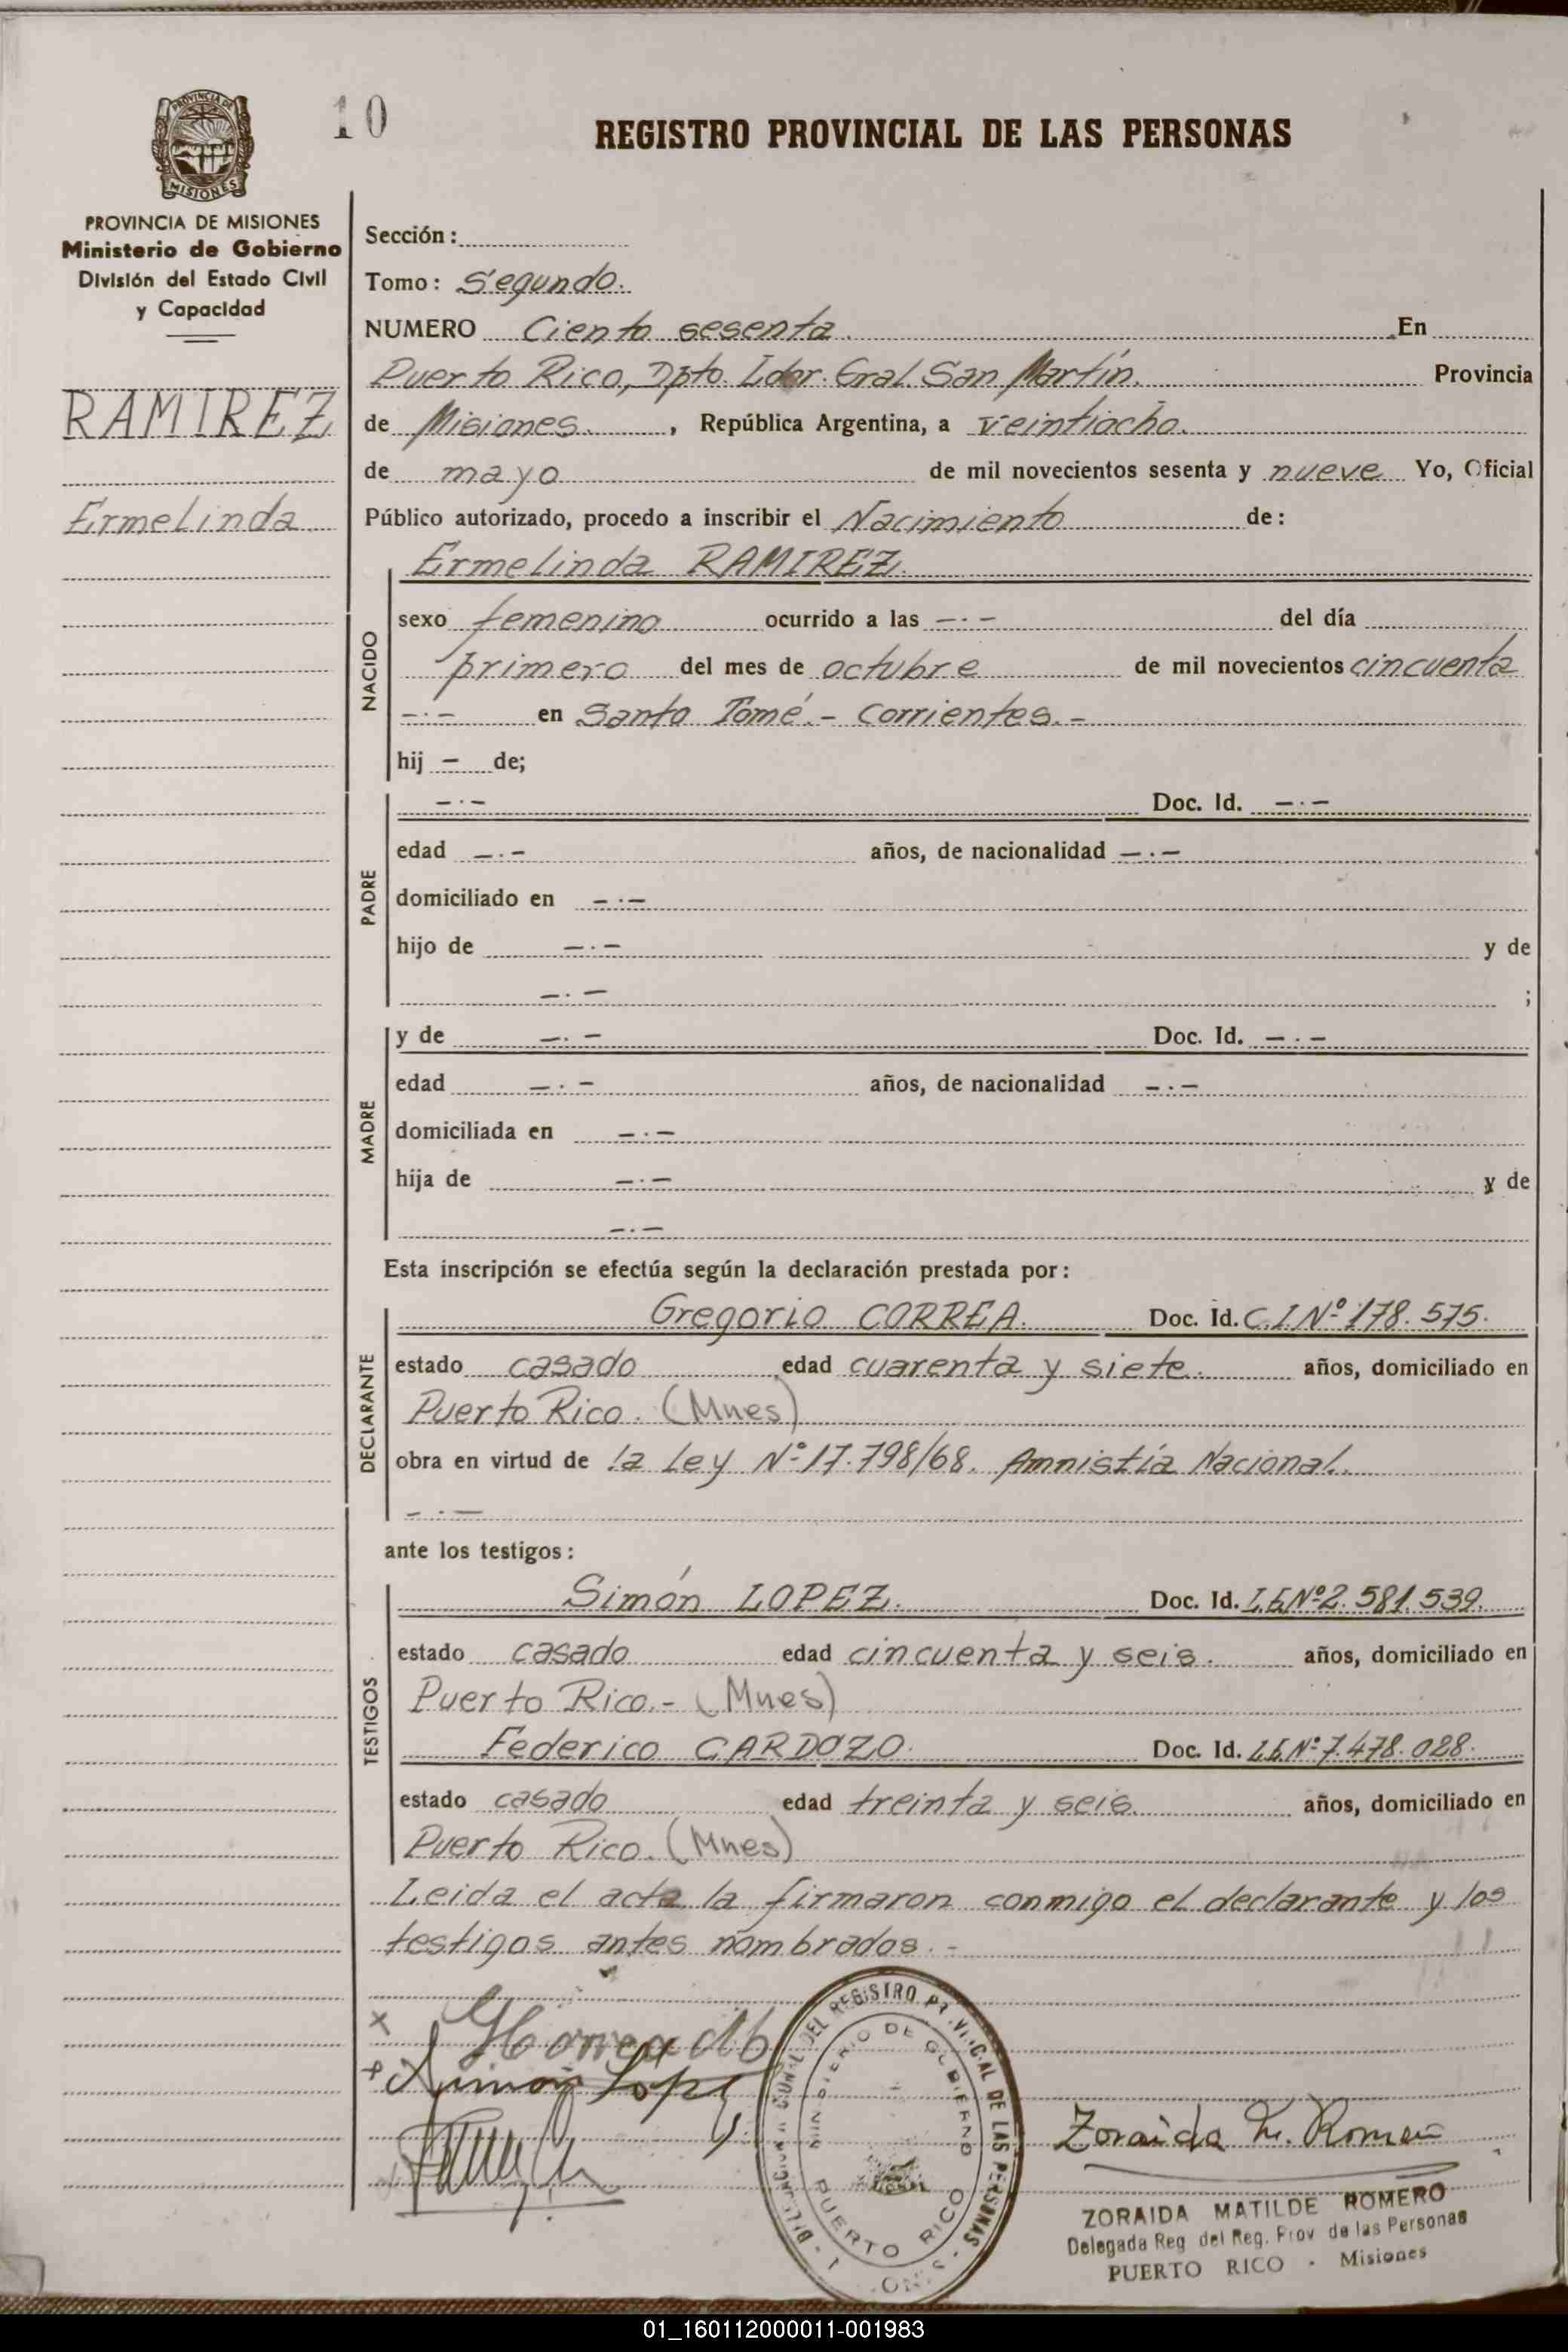 10
REGISTRO PROVINCIAL DE LAS PERSONAS
PROVINCIA DE
MISIONES
PROVINCIA DE MISIONES
Ministerio de Gobierno
División del Estado Civil
y Capacidad
RAMIREZ
Ermelinda
Sección:
Tomo: Segundo.
NUMERO Ciento sesenta. En
Puerto Rico, Dpto. Ldor. Gral San Martín. Provincia
de Misiones. , República Argentina, a veintiocho.
de mayo de mil novecientos sesenta y nueve Yo, Oficial
Público autorizado, procedo a inscribir el Nacimiento de:
NACIDO
Ermelinda RAMIREZ.
sexo femenino ocurrido a las —.— del día
primero del mes de octubre de mil novecientos cincuenta
—.— en Santo Tomé.- Corrientes.-
hij — de;
PADRE
—.— Doc. Id. —.—
edad —.— años, de nacionalidad —.—
domiciliado en —.—
hijo de —.— y de
—.— ;
MADRE
y de —.— Doc. Id. —.—
edad —.— años, de nacionalidad —.—
domiciliada en —.—
hija de —.— y de
—.—
Esta inscripción se efectúa según la declaración prestada por:
DECLARANTE
Gregorio CORREA. Doc. Id. C.I.Nº 178.575.
estado casado edad cuarenta y siete. años, domiciliado en
Puerto Rico. (Mnes)
obra en virtud de la Ley Nº 17.798/68. Amnistía Nacional.
—.—
ante los testigos:
TESTIGOS
Simón LOPEZ. Doc. Id. L.E.Nº 2.581.539.
estado casado edad cincuenta y seis. años, domiciliado en
Puerto Rico.- (Mnes)
Federico CARDOZO. Doc. Id. L.E.Nº 7.478.028.
estado casado edad treinta y seis. años, domiciliado en
Puerto Rico. (Mnes)
Leida el acta la firmaron conmigo el declarante y los
testigos antes nombrados.-
Simon Lopez
DEL REGISTRO PROVINCIAL DE LAS PERSONAS
MINISTERIO DE GOBIERNO
PUERTO RICO
Zoraida M. Romero
ZORAIDA MATILDE ROMERO
Delegada Reg del Reg. Prov de las Personas
PUERTO RICO - Misiones
01_160112000011-001983